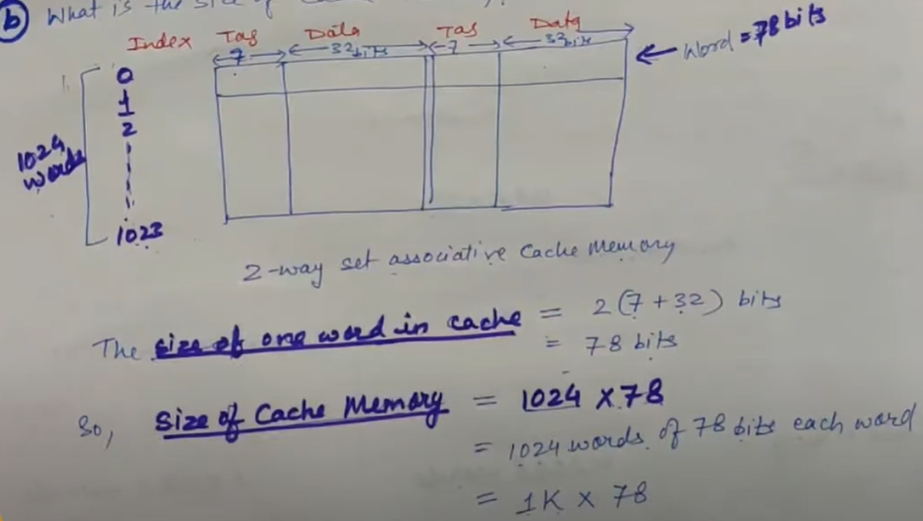 b What is the size of
Index Tag Data Tag Data
7 32 bits 7 32 bits
Word = 78 bits
0
1
2
1024 words
1023
2-way set associative Cache Memory
The size of one word in cache = 2 (7 + 32) bits
= 78 bits
So, Size of Cache Memory = 1024 x 78
= 1024 words of 78 bits each word
= 1K x 78